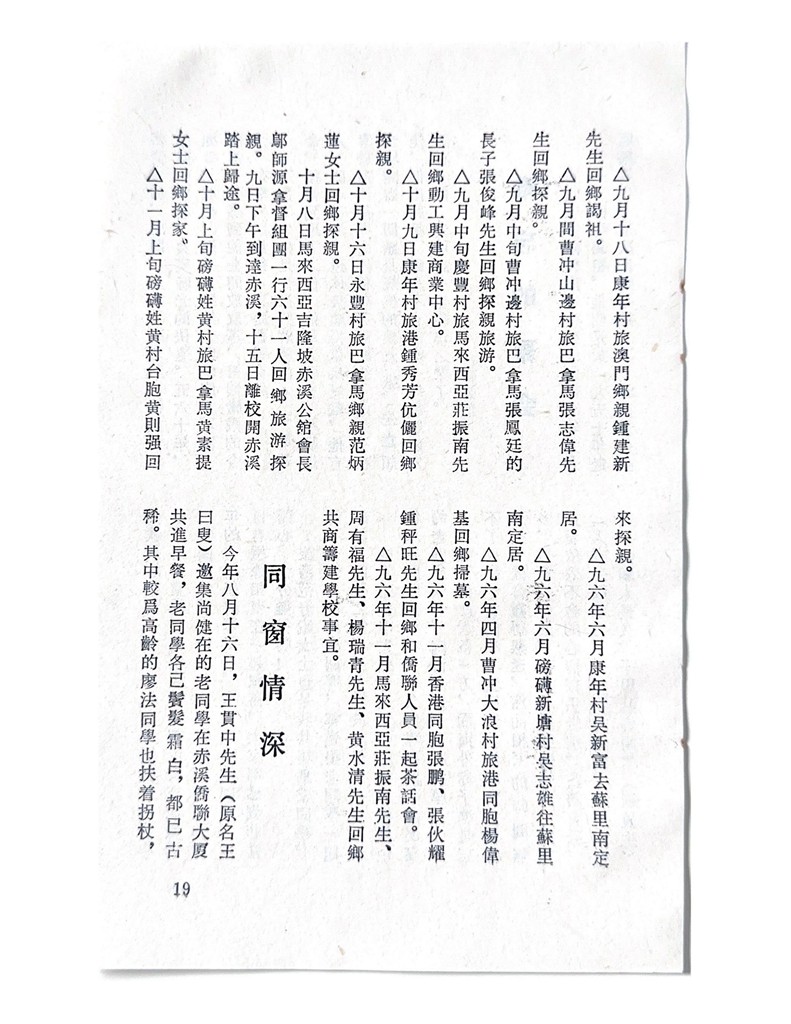 △九月十八日康年村旅澳門鄉親鍾建新
先生回鄉謁祖。
△九月間曹冲山邊村旅巴拿馬張志偉先
生回鄉探親。
△九月中旬曹冲邊村旅巴拿馬張鳳廷的
長子張俊峰先生回鄉探親旅游。
△九月中旬慶豐村旅馬來西亞莊振南先
生回鄉動工興建商業中心。
△十月九日康年村旅港鍾秀芳伉儷回鄉
探親。
△十月十六日永豐村旅巴拿馬鄉親范炳
蓮女士回鄉探親。
十月八日馬來西亞吉隆坡赤溪公舘會長
鄔師源拿督組團一行六十一人回鄉旅游探
親。九日下午到達赤溪，十五日離校開赤溪
踏上歸途。
△十月上旬磅礴姓黃村旅巴拿馬黃素提
女士回鄉探家。
△十一月上旬磅礴姓黃村台胞黃則强回
來探親。
△九六年六月康年村吳新富去蘇里南定
居。
△九六年六月磅礴新塘村吳志雄往蘇里
南定居。
△九六年四月曹冲大浪村旅港同胞楊偉
基回鄉掃墓。
△九六年十一月香港同胞張鹏、張伙耀
鍾秤旺先生回鄉和僑聯人員一起茶話會。
△九六年十一月馬來西亞莊振南先生、
周有福先生、楊瑞青先生、黄水清先生回鄉
共商籌建學校事宜。
同窗情深
今年八月十六日，王貫中先生（原名王
曰叟）邀集尚健在的老同學在赤溪僑聯大厦
共進早餐，老同學各己鬢髮霜白，都已古
稀。其中較爲高齡的廖法同學也扶着拐杖，
19